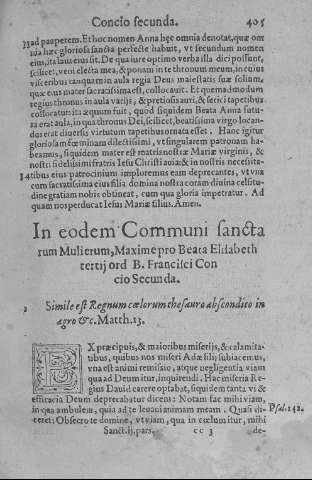 Concio secunda. 405
33 ad pauperem. Et hoc nomen Anna hęc omnia denotat, quæ om
nia hæc gloriosa sancta perfecte habuit, vt secundum nomen
eius, ita laus eius sit. De qua iure optimo verba illa dici possunt,
scilicet, veni electa mea, & ponam in te thronum meum, in cuius
visceribus tanquam in aula regia Deus maiestatis suæ solium,
quæ eius mater sacratissima est, collocauit. Et quemadmodum
regius thronus in aula varijs, & pretiosi auri, & serici tapetibus
collocatur: ita æquum fuit, quod siquidem Beata Anna futu-
ra erat aula, in qua thronus Dei, scilicet, beatissima virgo locan-
dus erat diuersis virtutum tapetibus ornata esset. Hanc igitur
gloriosam fœminam dilectissimi, vt singularem patronam ha-
beamus, siquidem mater est matris nostræ Mariæ virginis, &
nostri fidelissimi fratris Iesu Christi auia: & in nostris necessita-
34 tibus eius patrocinium imploremus eam deprecantes, vt vna
cum sacratissima eius filia domina nostra coram diuina celsitu-
dine gratiam nobis obtineat, cum qua gloria impetratur. Ad
quam nos perducat Iesus Mariæ filius. Amen.
In eodem Communi sancta
rum Mulierum, Maxime pro Beata Elisabeth
tertij ord B. Francisci Con
cio Secunda.
1 Simile est Regnum cœlorum thesauro abscondito in
agro &c. Matth. 13.
EX præcipuis, & maioribus miserijs, & calamita-
tibus, quibus nos miseri Adæ filij subiacemus,
vna est animi remissio, atque negligentia viam
qua ad Deum itur, inquirendi. Hac miseria Re-
gius Dauid carere optabat, siquidem tanta vi &
efficacia Deum deprecabatur dicens: Notam fac mihi viam,
in qua ambulem, quia ad te leuaui animam meam. Quasi di- Psal. 142.
ceret: Obsecro te domine, vt viam, qua in cœlum itur, mihi
Sanct. ij. pars. cc 3 de-